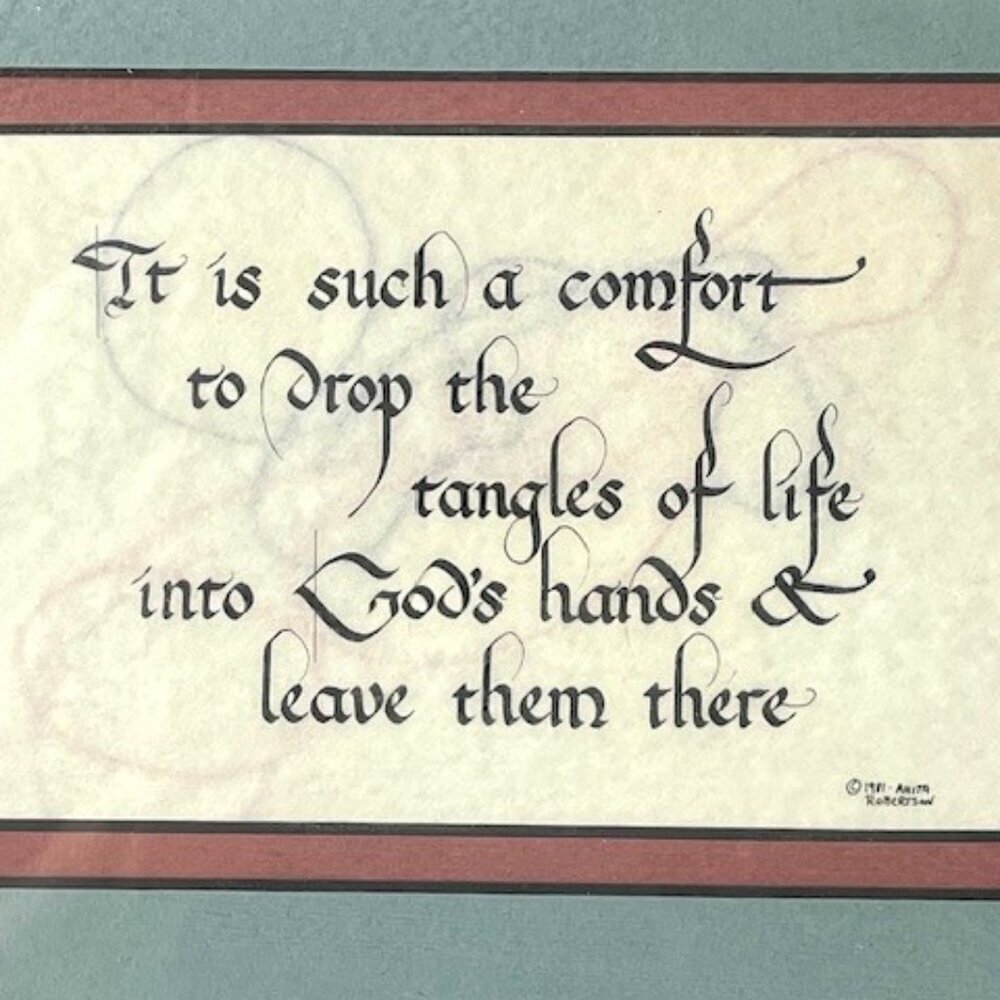 It is such a comfort
to drop the
tangles of life
into God's hands &
leave them there
© 1981 - ANITA
ROBERTSON